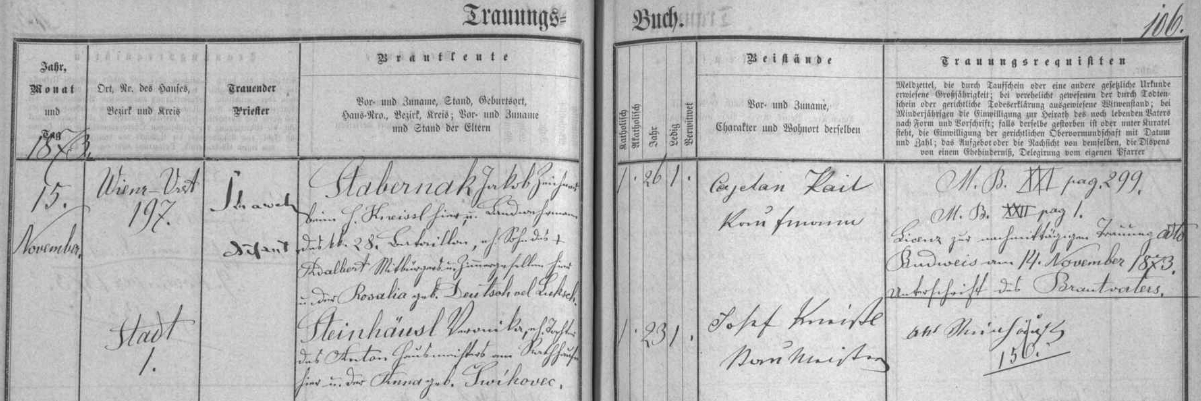 Trauungs=
Buch.
106.
Jahr,
Monat
und
Tag
1873.
Ort, Nr. des Hauses,
Bezirk und Kreis
Trauender
Priester
Brautleute
Vor- und Zuname, Stand, Geburtsort,
Haus-Nro., Bezirk, Kreis; Vor- und Zuname
und Stand der Eltern
Katholisch
Akatholisch
Jahr
Ledig
Verwitwet
Beistände
Vor- und Zuname,
Charakter und Wohnort derselben
Trauungsrequisiten
Meldzettel, die durch Taufschein oder eine andere gesetzliche Urkunde
erwiesene Großjährigkeit; bei verehelicht gewesenen der durch Todten-
schein oder gerichtliche Todeserklärung ausgewiesene Witwenstand; bei
Minderjährigen die Einwilligung zur Heirath des noch lebenden Vaters
nach Form und Vorschrift; falls derselbe gestorben ist oder unter Kuratel
steht, die Einwilligung der gerichtlichen Obervormundschaft mit Datum
und Zahl; das Aufgebot oder die Nachsicht von demselben, die Dispens
von einem Ehehinderniß, Delegirung vom eigenen Pfarrer
15.
November.
Wiener-Vorst
197.
Stabernak Jakob Zeichner
beim H. Kneissl hier u. Landwehrmann
des 28. Bataillon, eh. Sohn des †
Adalbert Mitbürgers u. hier
u. der Rosalia geb. Deutsch
1. 26 1.
Cajetan Kail
Kaufmann
M. B. XXI pag. 299.
M. B. XXII pag 1.
Licenz zur nachmittägigen Trauung ddto
Budweis am 14. November 1873.
Unterschrift des Brautvaters.
Stadt
1.
Steinhäusl Veronika, eh. Tochter
des Anton Hausmeisters am Rathhause
hier u. der Anna geb. Zwikovec.
1. 23 1.
Josef Kneißl
Baumeister
Steinhäusl
156.